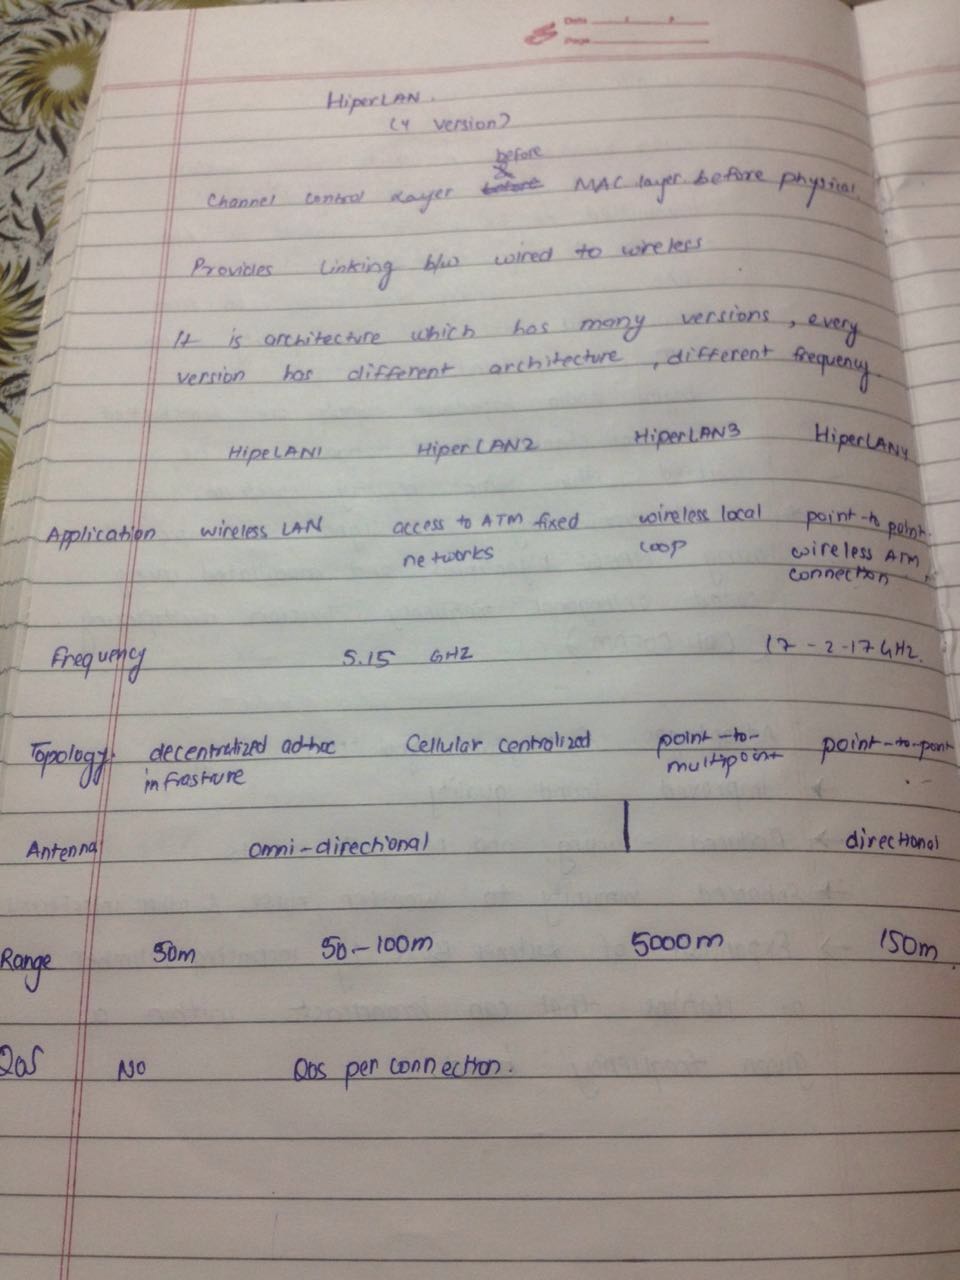 Date
Page
HiperLAN.
(4 version)
before
&
Channel control Layer before MAC layer before physical.
Provides Linking b/w wired to wireless
It is architecture which has many versions, every
version has different architecture, different frequency.
HipeLAN1 HiperLAN2 HiperLAN3 HiperLAN4
Application wireless LAN access to ATM fixed wireless local point-to point
networks loop wireless ATM
connection
Frequency 5.15 GHZ 17-2-17GHz.
Topology decentralized ad-hoc Cellular centralized point-to- point-to-pont
infrasture multipoint
Antenna omni-directional | directional
Range 50m 50-100m 5000m 150m
QoS No Qos per connection.